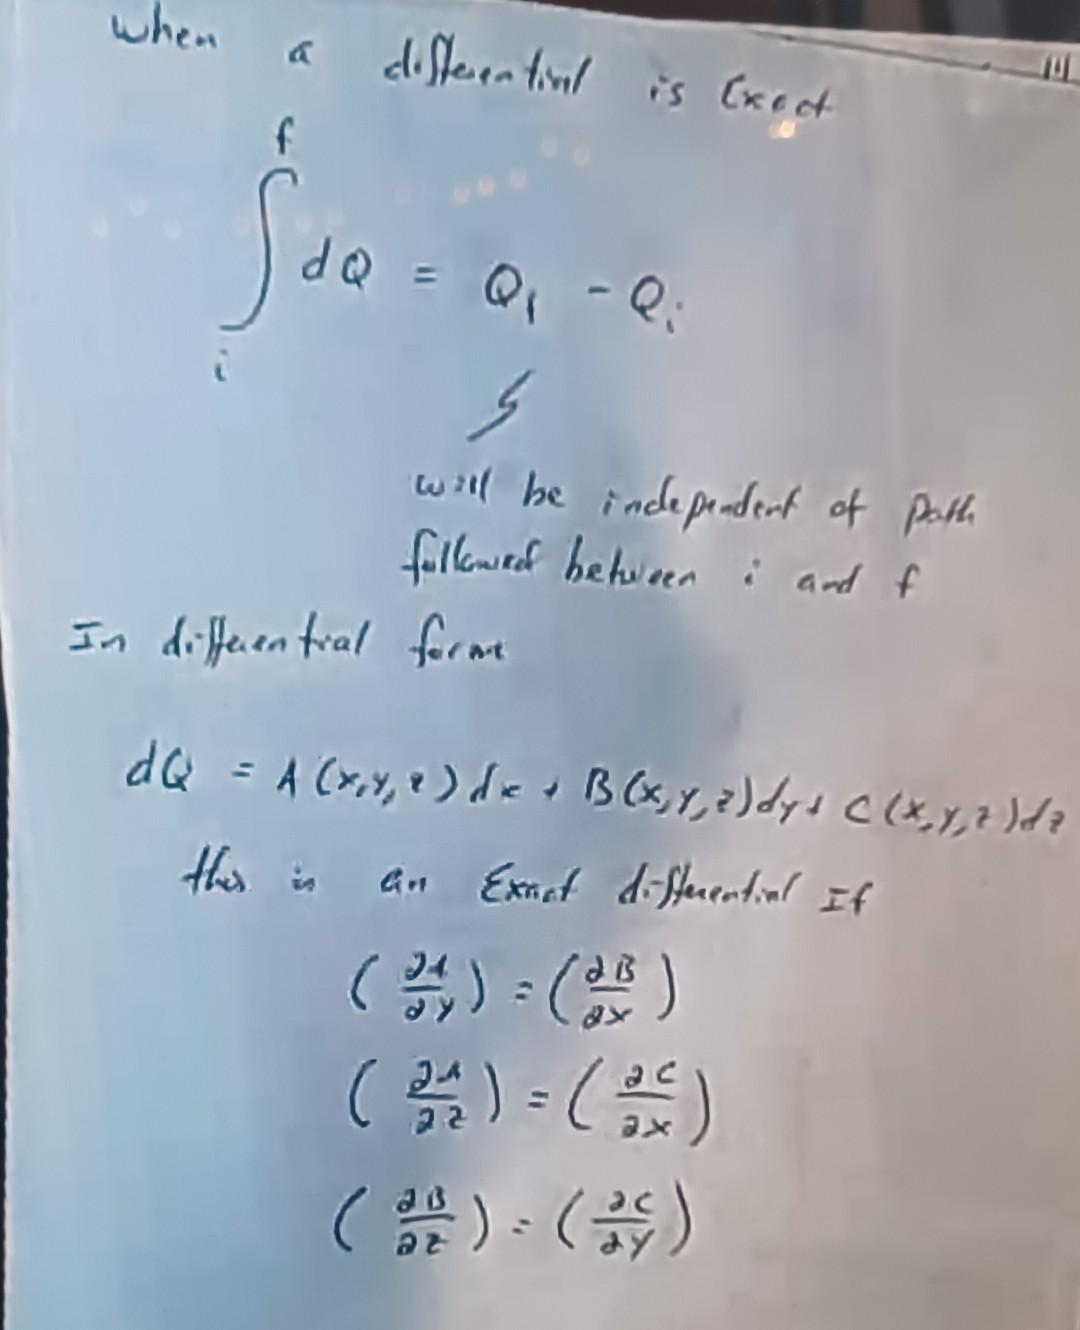 When a differential is Exact
∫ᵢᶠ dQ = Q₁ - Qᵢ
will be independent of path
followed between i and f
In differential form
dQ = A(x,y,z)dx + B(x,y,z)dy + C(x,y,z)dz
this is an Exact differential If
(∂A/∂y) = (∂B/∂x)
(∂A/∂z) = (∂C/∂x)
(∂B/∂z) = (∂C/∂y)